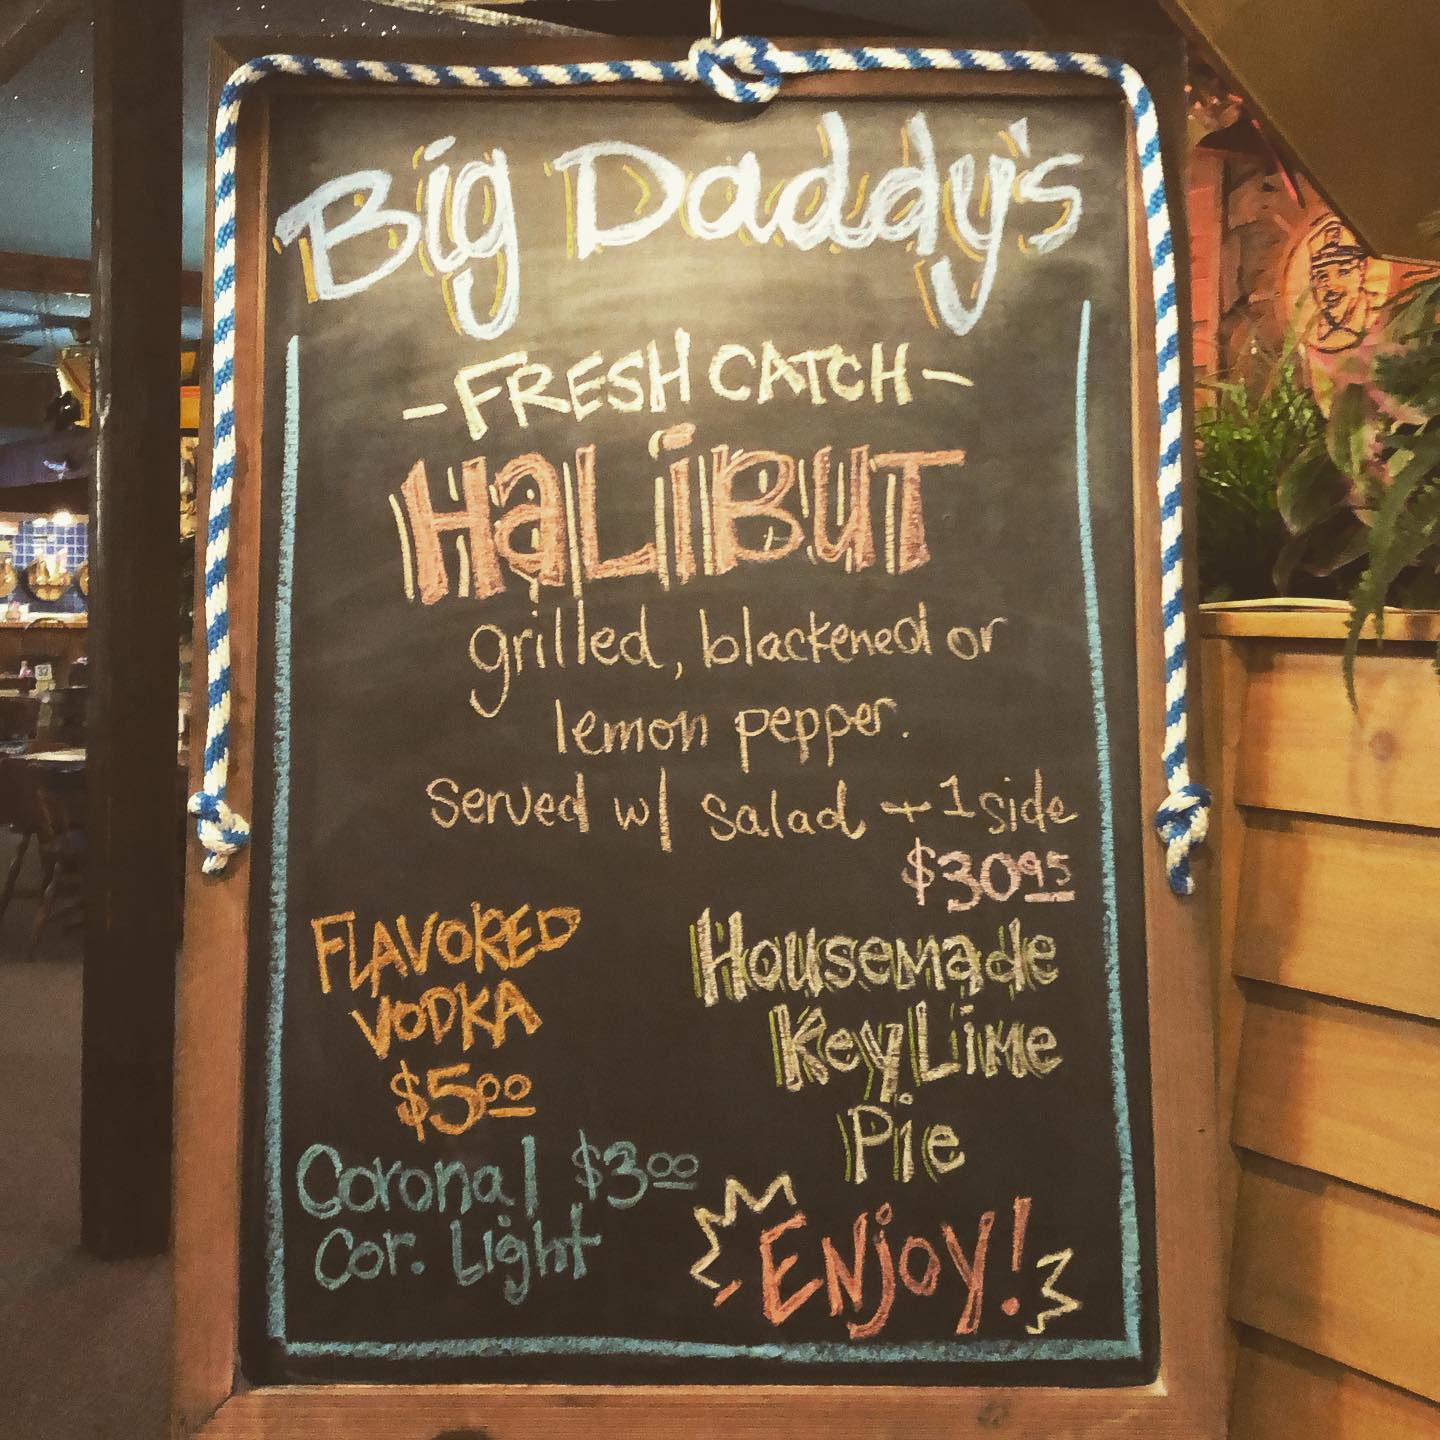 Big Daddy's
-FRESH CATCH-
HaLiBUT
grilled, blackened or
lemon pepper.
Served w/ salad + 1 side
$30.95
FLAVORED
VODKA
$5.00
Corona/ $3.00
Cor. Light
Housemade
Key Lime
Pie
ENjOY!